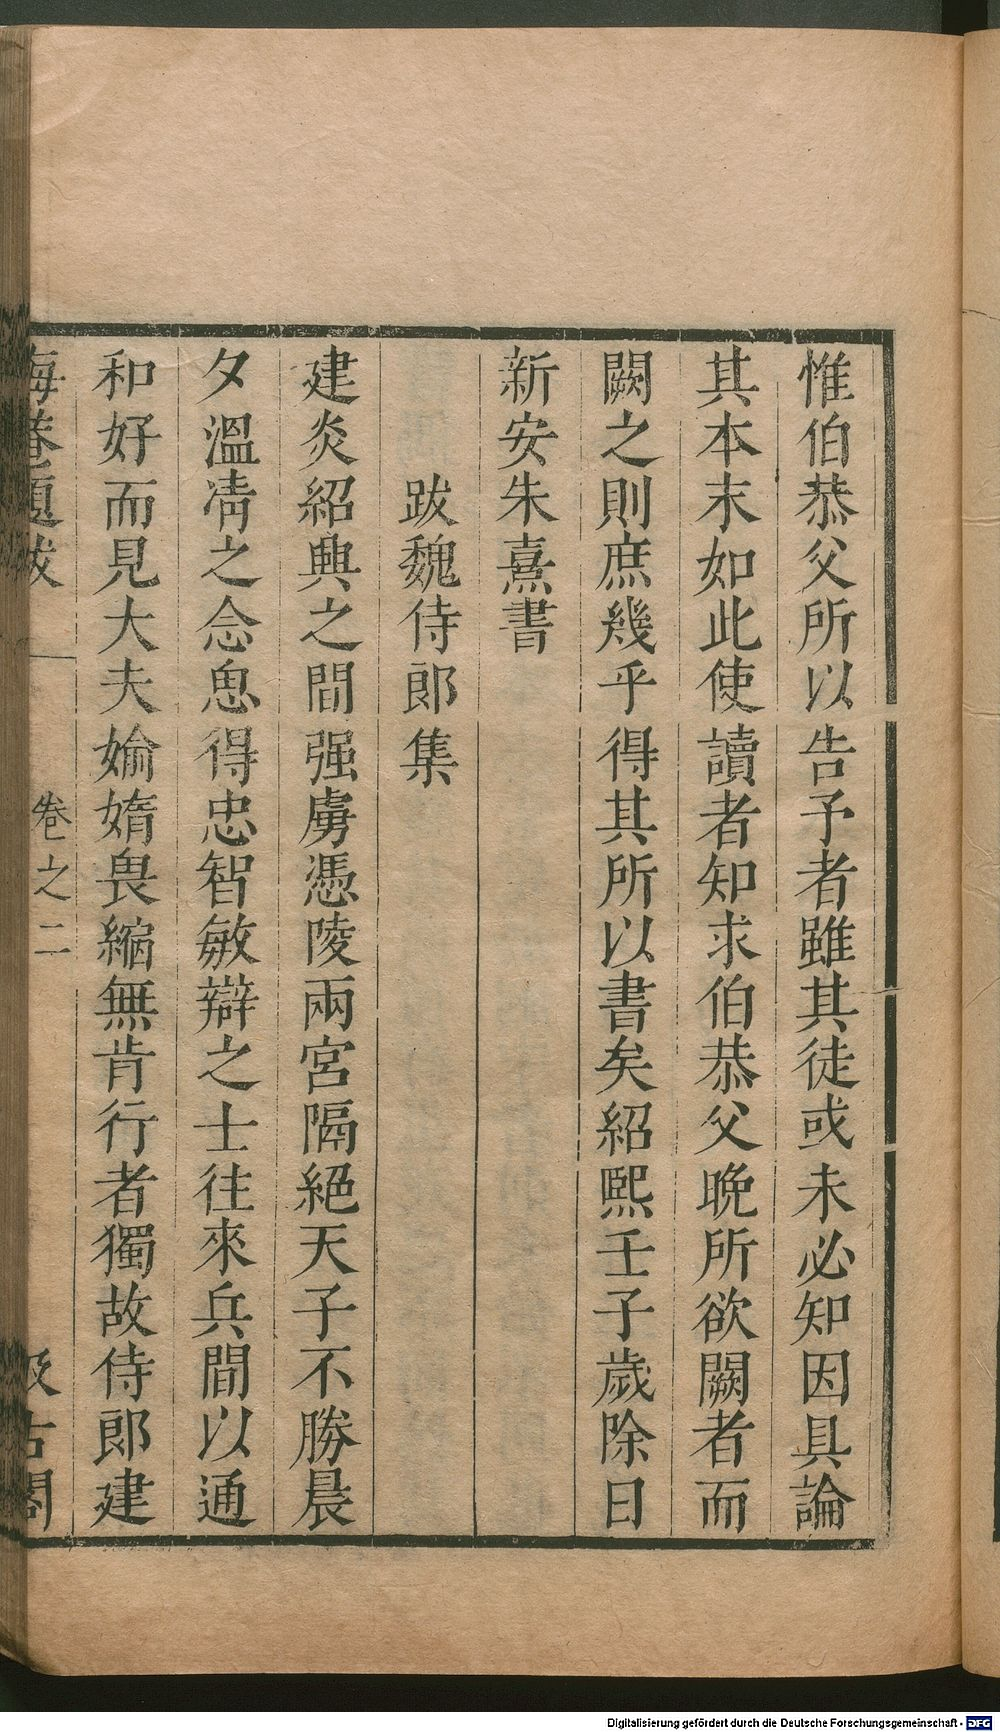 惟伯恭父所以告予者雖其徒或未必知因具論
其本末如此使讀者知求伯恭父晚所欲闕者而
闕之則庶幾乎得其所以書矣紹熙壬子歲除日
新安朱熹書
跋魏侍郎集
建炎紹興之間强虜憑陵兩宮隔絕天子不勝晨
夕溫凊之念思得忠智敏辯之士往來兵間以通
和好而見大夫媮媠畏縮無肯行者獨故侍郎建
晦菴題跋 卷之二 汲古閣
Digitalisierung gefördert durch die Deutsche Forschungsgemeinschaft - DFG